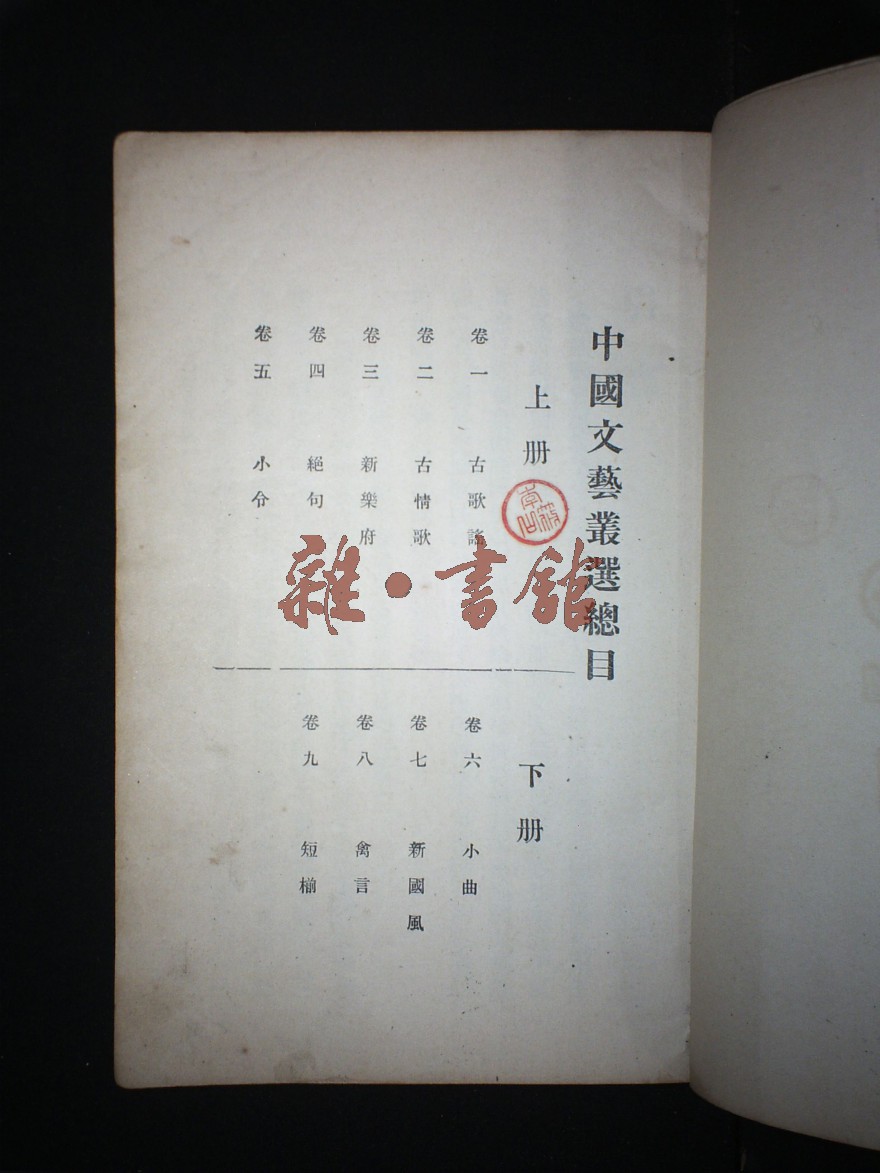 中國文藝叢選總目
上册
卷一 古歌謠
卷二 古情歌
卷三 新樂府
卷四 絕句
卷五 小令
下册
卷六 小曲
卷七 新國風
卷八 禽言
卷九 短㨨
雜·書館